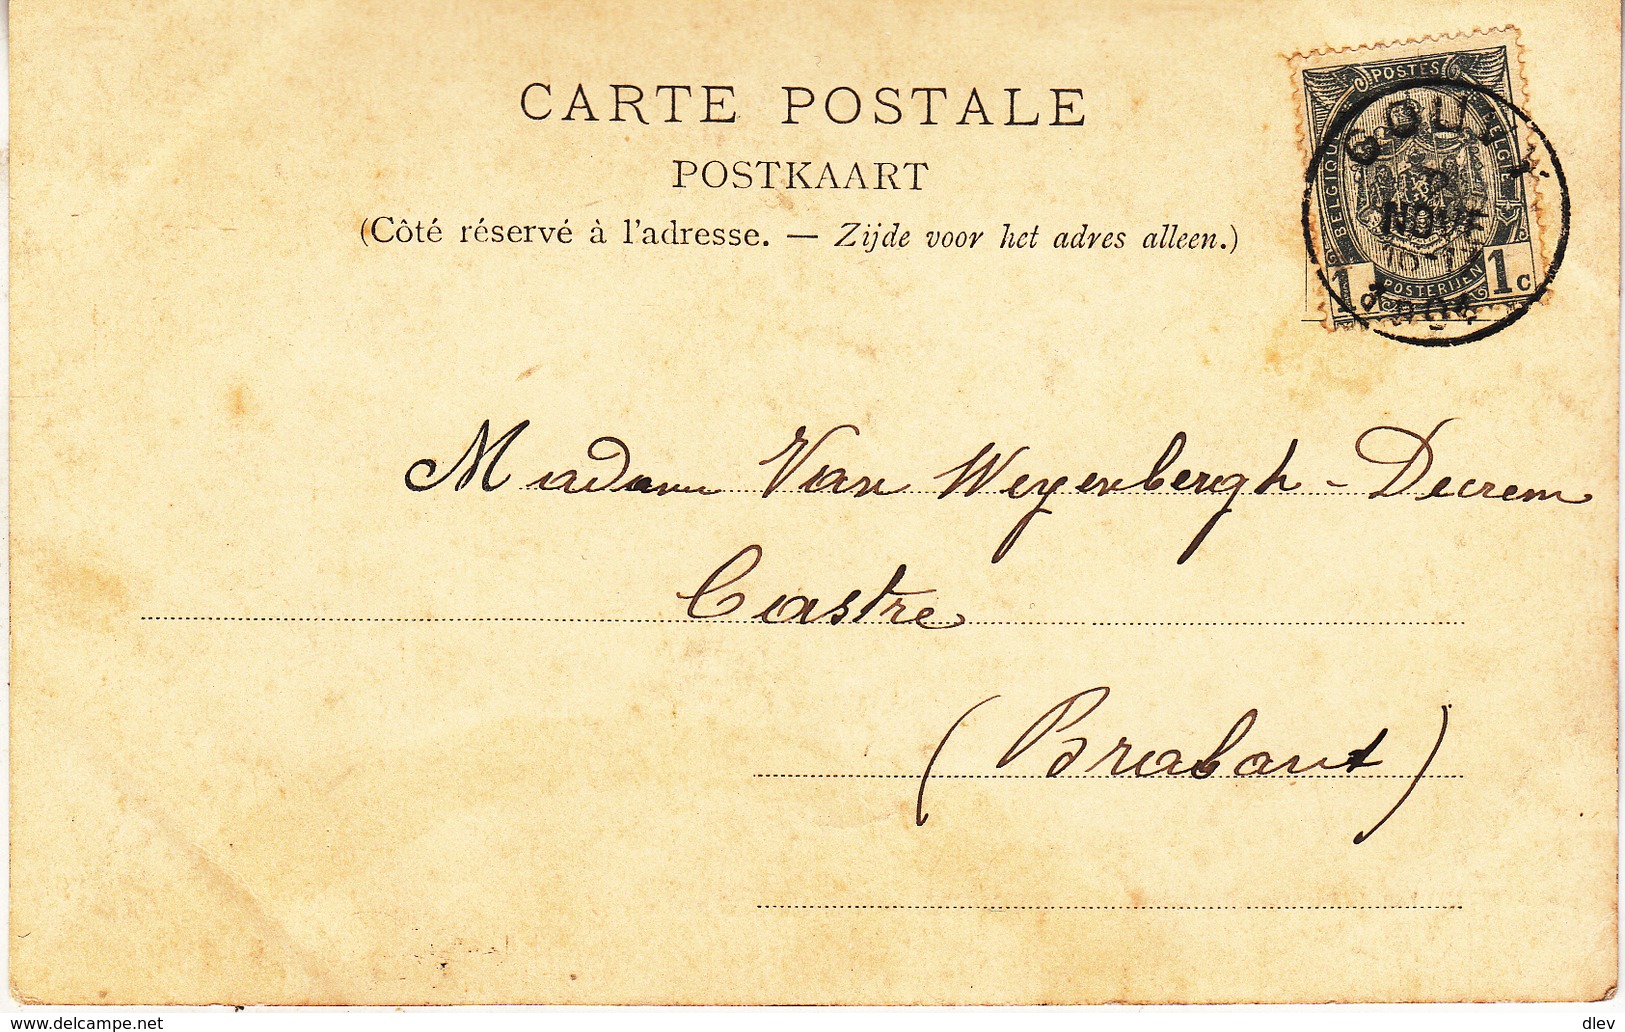 CARTE POSTALE
POSTKAART
(Côté réservé à l'adresse. — Zijde voor het adres alleen.)
POSTES
BELGIQUE BELGIË
POSTERIJEN
1c 1c
GOUY
NOVE
Madam Van Weyenbergh - Decrem
Castre
(Brabant)
www.delcampe.net
dlev